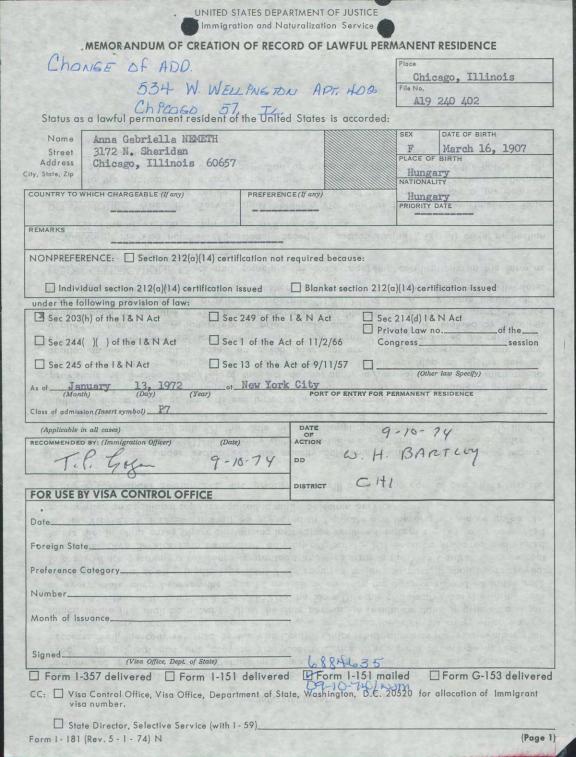 UNITED STATES DEPARTMENT OF JUSTICE
Immigration and Naturalization Service
MEMORANDUM OF CREATION OF RECORD OF LAWFUL PERMANENT RESIDENCE
CHANGE OF ADD.
534 W. WELLINGTON APT. 402
CHICAGO 57, IL
Place
Chicago, Illinois
File No.
A19 240 402
Status as a lawful permanent resident of the United States is accorded:
Name Anna Gabriella NEMETH
Street 3172 N. Sheridan
Address Chicago, Illinois 60657
City, State, Zip
SEX F
DATE OF BIRTH March 16, 1907
PLACE OF BIRTH
Hungary
NATIONALITY
Hungary
COUNTRY TO WHICH CHARGEABLE (If any)
PREFERENCE (If any)
PRIORITY DATE
REMARKS
NONPREFERENCE: Section 212(a)(14) certification not required because:
Individual section 212(a)(14) certification issued Blanket section 212(a)(14) certification issued
under the following provision of law:
Sec 203(h) of the I & N Act Sec 249 of the I & N Act Sec 214(d) I & N Act
Private Law no. of the
Sec 244( )( ) of the I & N Act Sec 1 of the Act of 11/2/66 Congress session
Sec 245 of the I & N Act Sec 13 of the Act of 9/11/57
(Other law Specify)
As of January 13, 1972 at New York City
(Month) (Day) (Year) PORT OF ENTRY FOR PERMANENT RESIDENCE
Class of admission (Insert symbol) P7
(Applicable in all cases)
RECOMMENDED BY: (Immigration Officer) (Date)
9-10-74
DATE OF ACTION 9-10-74
DD W. H. BARTLEY
DISTRICT CHI
FOR USE BY VISA CONTROL OFFICE
Date
Foreign State
Preference Category
Number
Month of Issuance
Signed
(Visa Office, Dept. of State)
6884635
Form I-357 delivered Form I-151 delivered Form I-151 mailed Form G-153 delivered
09-10-74
CC: Visa Control Office, Visa Office, Department of State, Washington, D.C. 20520 for allocation of Immigrant
visa number.
State Director, Selective Service (with I-59)
Form I-181 (Rev. 5-1-74) N (Page 1)